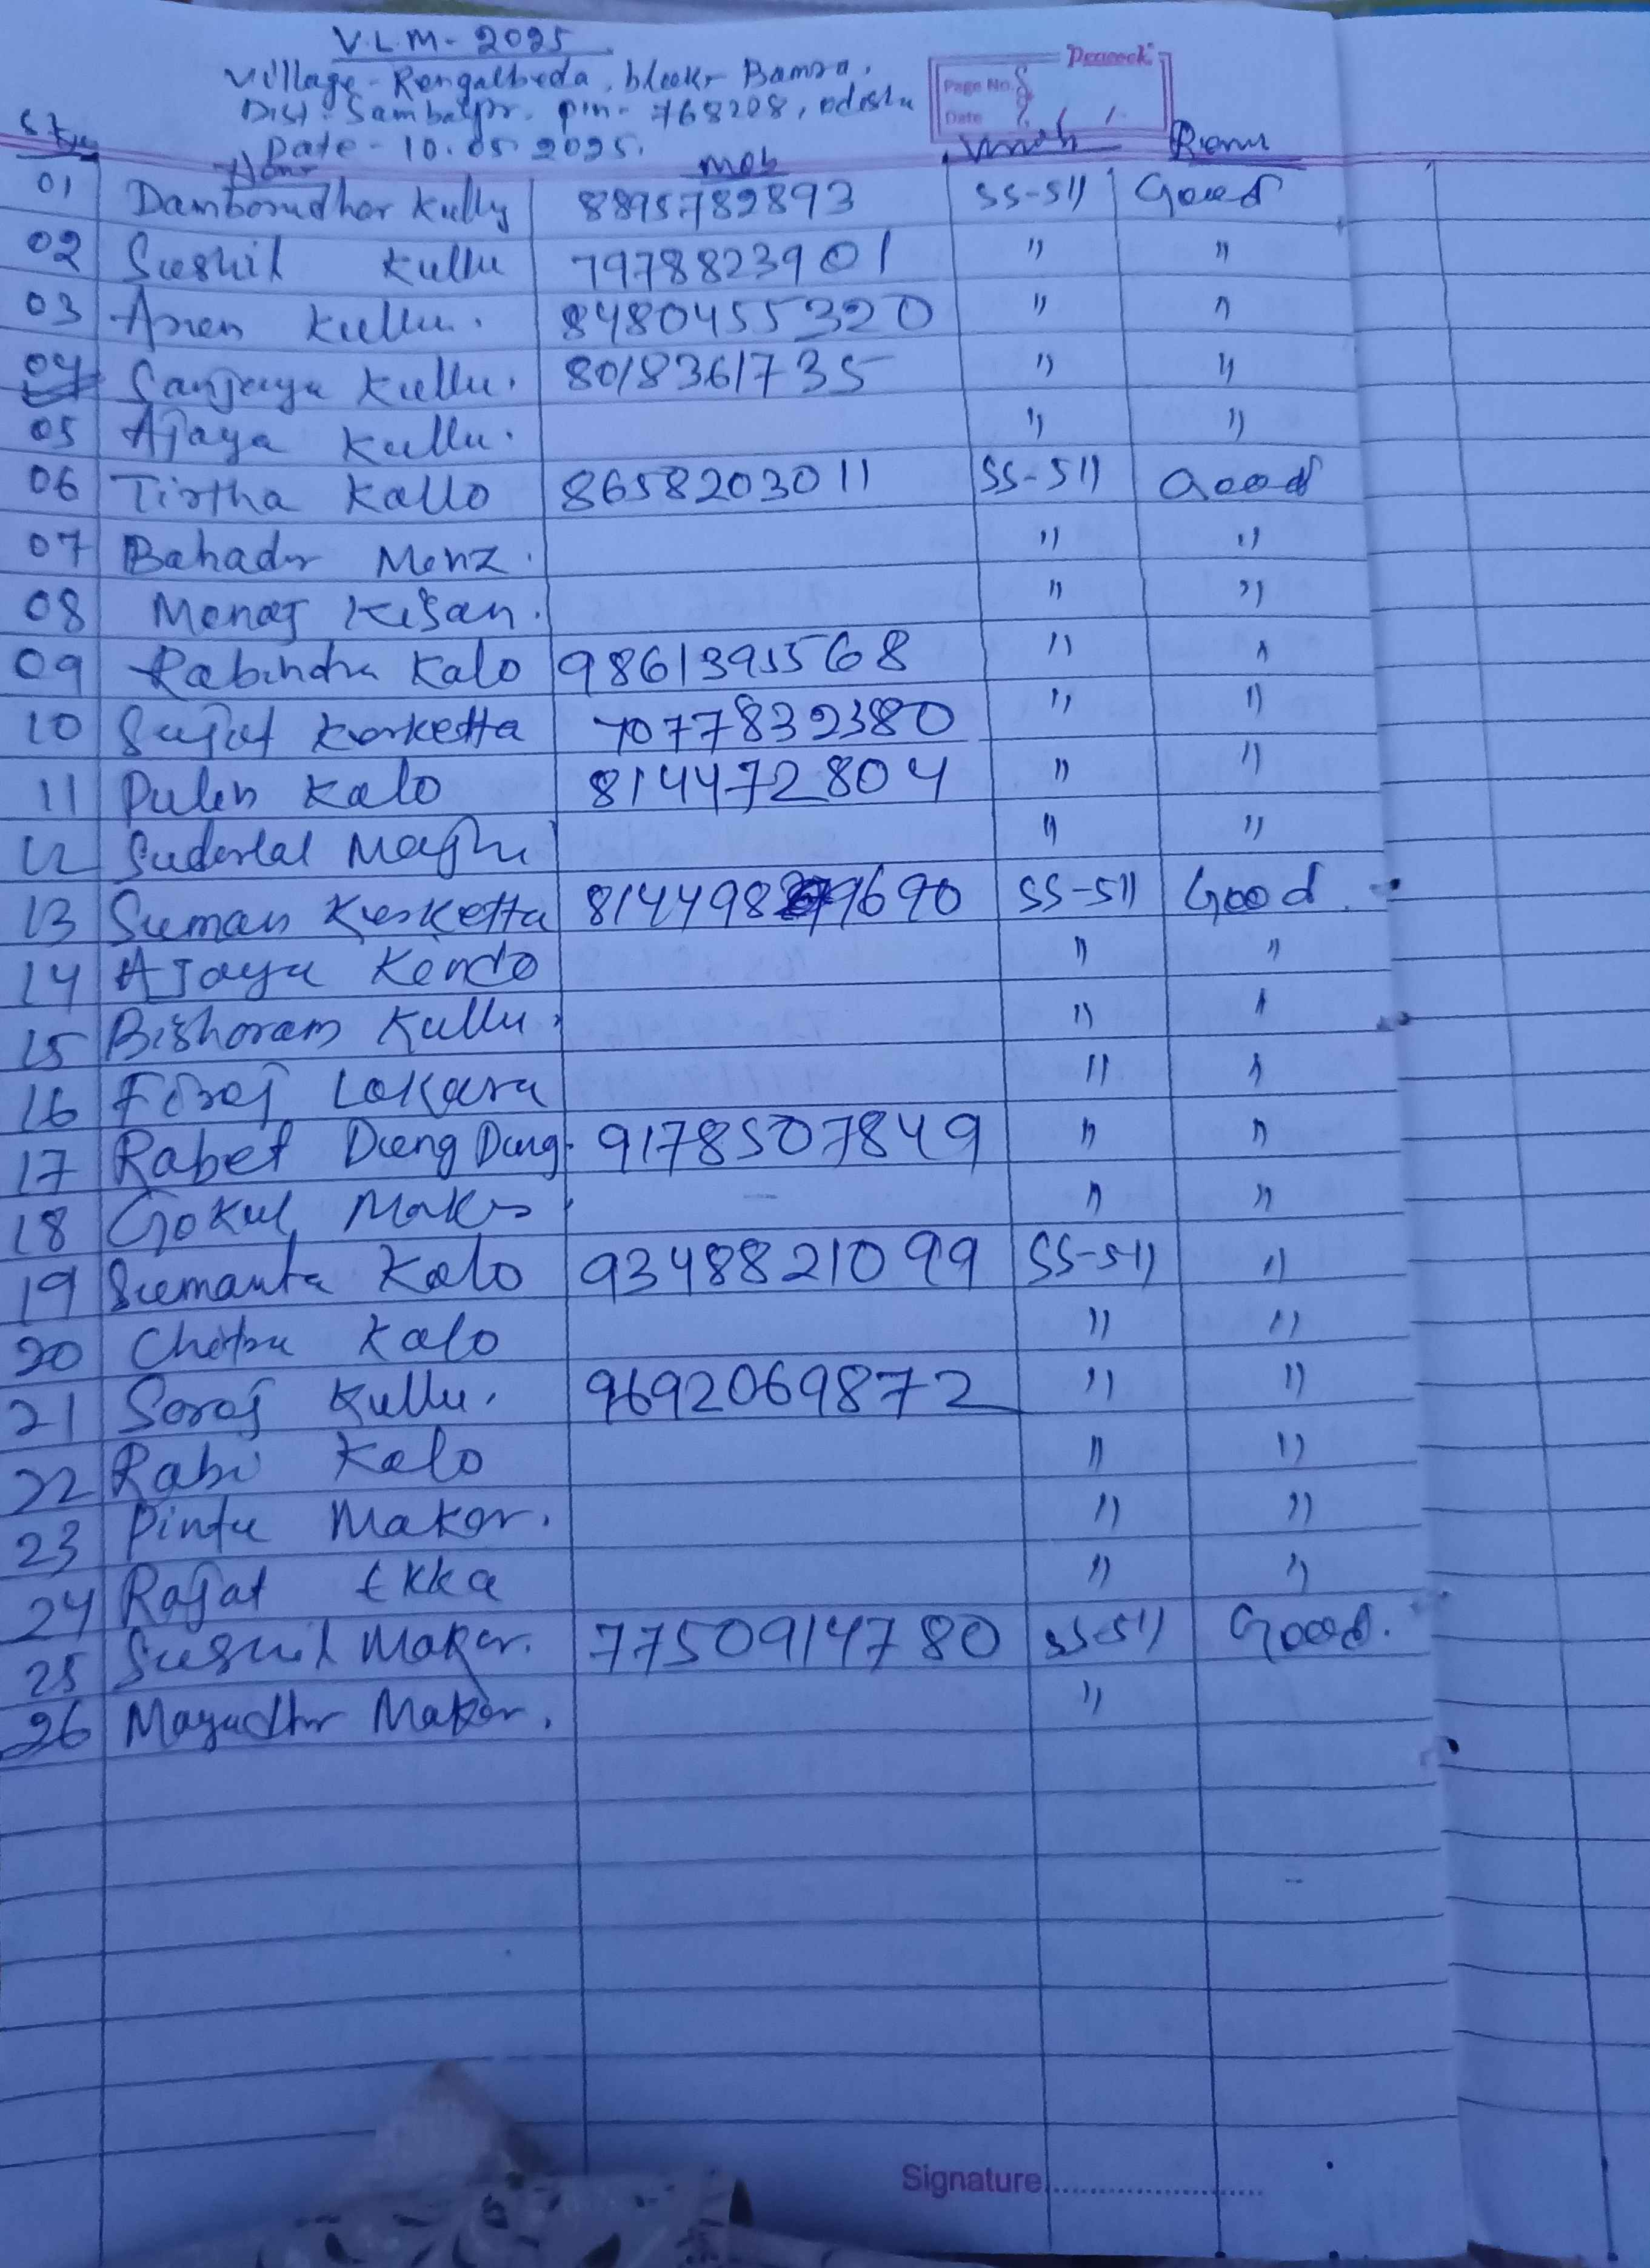 V.L.M- 2025
Village - Rengalbeda, block Bamra,
Dist - Sambalpr. pin - 768228, odisha
Date - 10.05.2025.
Peacock
Page No.
Date
Name Mob
01 Damborudhar Kullu 8895789893 SS-511 Good
02 Sushil Kullu 7978823901 " "
03 Amen Kullu. 8480455320 " "
04 Sanjaya Kullu. 8018361735 " "
05 Ajaya Kullu. " "
06 Tirtha Kallo 8658203011 SS-511 Good
07 Bahadr Menz. " "
08 Monaj Kisan. " "
09 Rabindra Kalo 9861395568 " "
10 Sujit Kerketta 7077832380 " "
11 Pulen Kalo 814472804 " "
12 Suderlal Majhi " "
13 Suman Kerketta 814498 9690 SS-511 Good
14 Ajaya Kendo " "
15 Bishoram Kullu. " "
16 Firoj Lakara " "
17 Rabet Dung Dung. 9178507849 " "
18 Gokul " "
19 Sumanta Kalo 9348821099 SS-511 "
20 Kalo " "
21 Soroj Kullu. 9692069872 " "
22 Rabi Kalo " "
23 Pintu Maker. " "
24 Rajat Ekka " "
25 Sushil Maker. 7750914780 SS-511 Good.
26 Mayadhr Maker. "
Signature